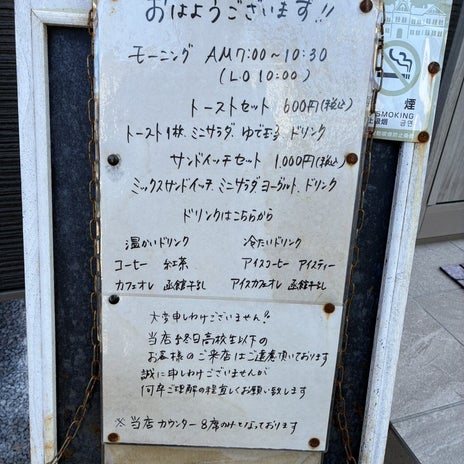 おはようございます!!
モーニング AM7:00〜10:30
(L.O 10:00)
トーストセット 600円(税込)
トースト1枚、ミニサラダ、ゆで玉子、ドリンク
サンドイッチセット 1,000円(税込)
ミックスサンドイッチ、ミニサラダ、ヨーグルト、ドリンク
ドリンクはこちらから
温かいドリンク 冷たいドリンク
コーヒー 紅茶 アイスコーヒー アイスティー
カフェオレ 函館牛乳 アイスカフェオレ 函館牛乳
大変申しわけございません!!
当店終日高校生以下の
お客様のご来店はご遠慮頂いております
誠に申しわけございませんが
何卒ご理解の程宜しくお願い致します
※当店カウンター8席のみとなっております
煙
SMOKING
吸烟 금연